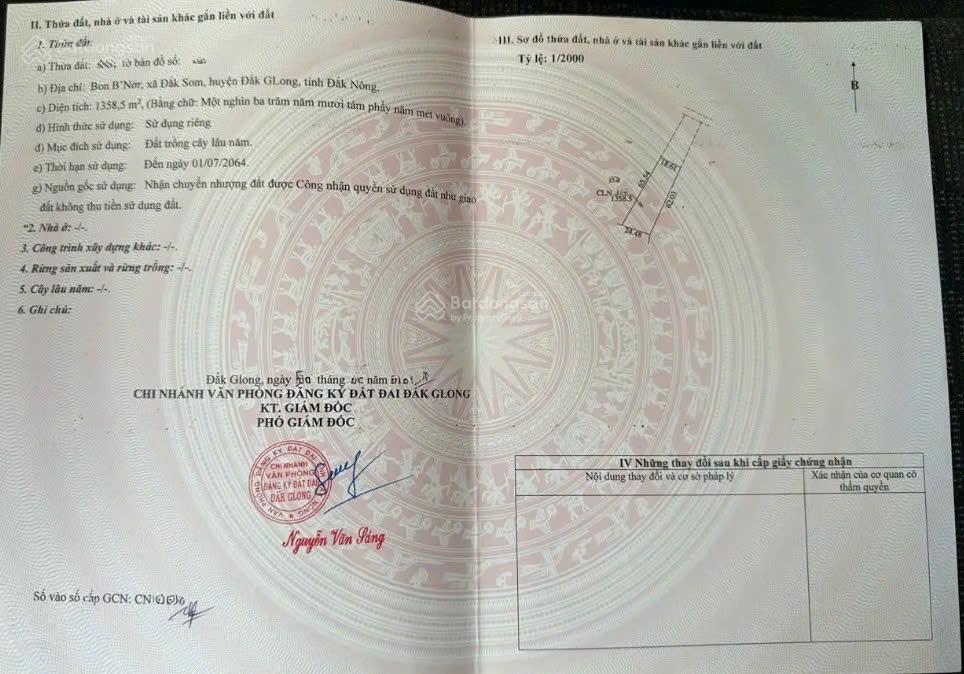 II. Thửa đất, nhà ở và tài sản khác gắn liền với đất
1. Thửa đất:
a) Thửa đất: tờ bản đồ số:
b) Địa chỉ: Bon B'Nơr, xã Đắk Som, huyện Đắk GLong, tỉnh Đắk Nông.
c) Diện tích: 1358,5 m², (Bằng chữ: Một nghìn ba trăm năm mươi tám phẩy năm mét vuông).
d) Hình thức sử dụng: Sử dụng riêng
đ) Mục đích sử dụng: Đất trồng cây lâu năm.
e) Thời hạn sử dụng: Đến ngày 01/07/2064.
g) Nguồn gốc sử dụng: Nhận chuyển nhượng đất được Công nhận quyền sử dụng đất như giao
đất không thu tiền sử dụng đất.
"2. Nhà ở: -/-.
3. Công trình xây dựng khác: -/-.
4. Rừng sản xuất và rừng trồng: -/-.
5. Cây lâu năm: -/-.
6. Ghi chú:
Đắk Glong, ngày tháng năm
CHI NHÁNH VĂN PHÒNG ĐĂNG KÝ ĐẤT ĐAI ĐẮK GLONG
KT. GIÁM ĐỐC
PHÓ GIÁM ĐỐC
CHI NHÁNH
VĂN PHÒNG
ĐĂNG KÝ ĐẤT ĐAI
ĐẮK GLONG
Nguyễn Văn Sáng
Số vào sổ cấp GCN: CN
III. Sơ đồ thửa đất, nhà ở và tài sản khác gắn liền với đất
Tỷ lệ: 1/2000
B
18.61
65.54
62.03
CLN
1358.5
24.48
Batdongsan
by PropertyGuru
IV Những thay đổi sau khi cấp giấy chứng nhận
Nội dung thay đổi và cơ sở pháp lý
Xác nhận của cơ quan có
thẩm quyền